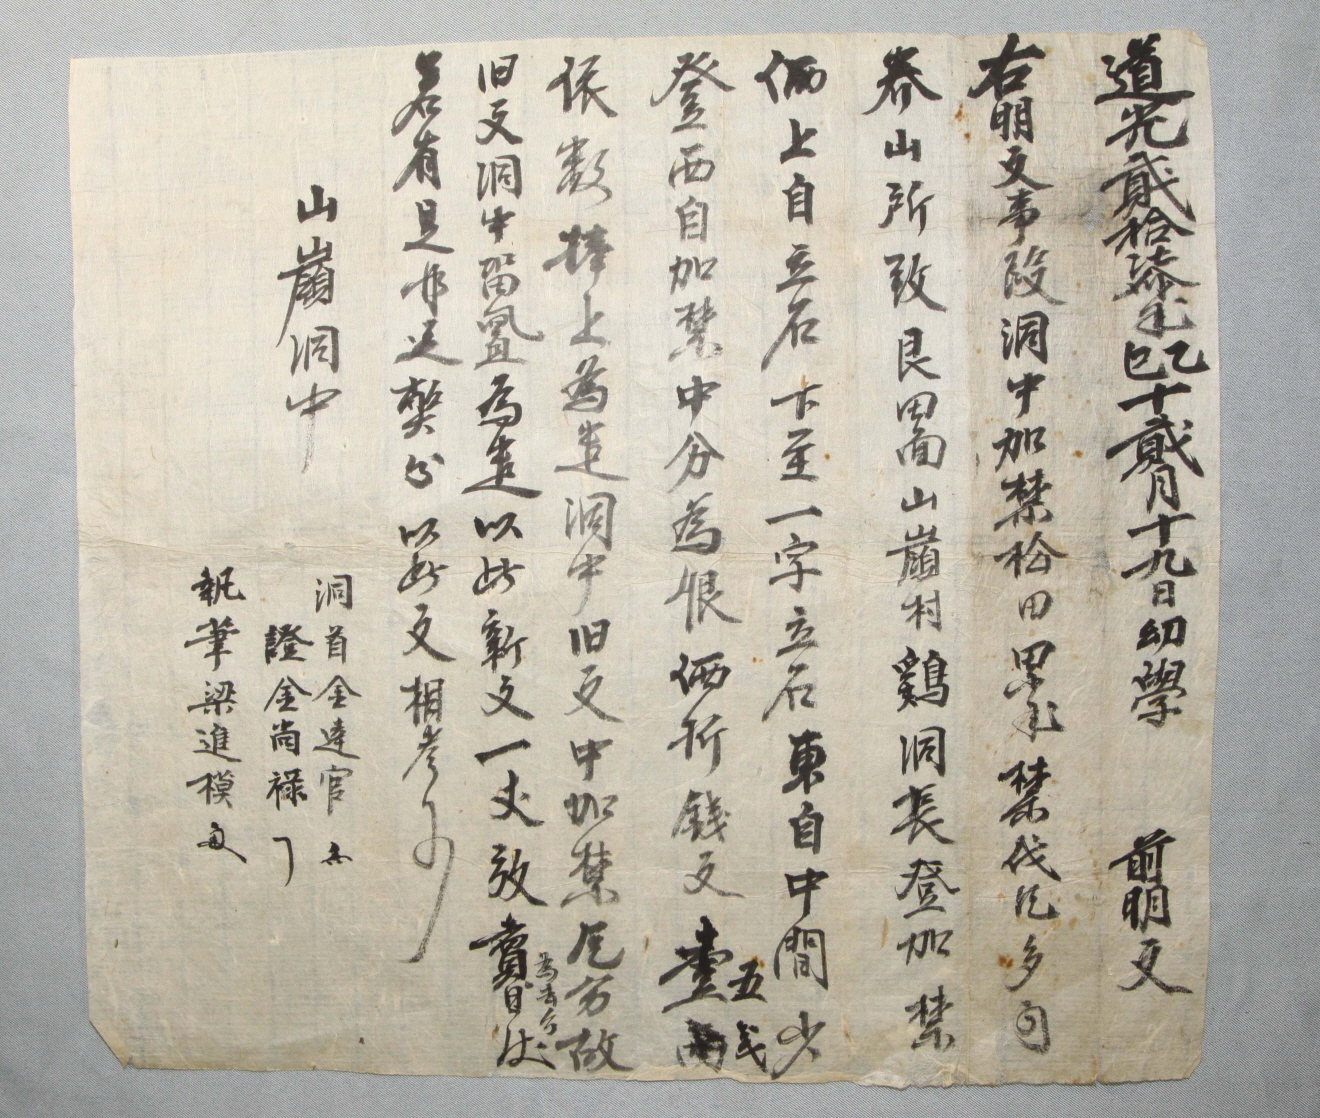 道光貳拾柒年乙巳十貳月十九日幼學 前明文
右明文事段洞中加禁松田累年禁伐是多旬
養山所致良田面山嶺村鷄洞長登加禁
価上自立石下至一字立石東自中間少
登西自加禁中分爲恨価折錢文壹兩五戔
依数捧上爲遣洞中旧文中加禁尾方故
旧文洞中留置爲遣以此新文一丈放賣爲去乎日後
若有是非是楪以此文相考事
山嶺洞中
洞首金達官
證金尚祿
執筆梁進模